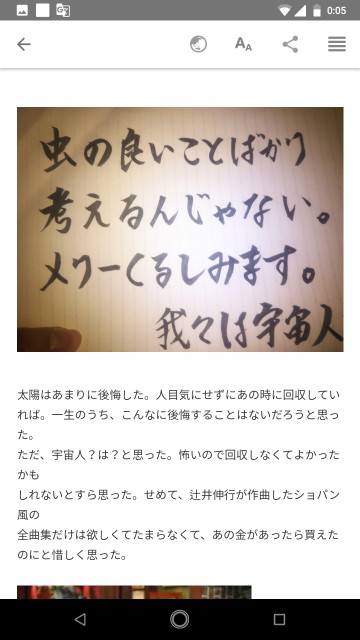 0:05
虫の良いことばかり
考えるんじゃない。
メリーくるしみます。
我々は宇宙人
太陽はあまりに後悔した。人目気にせずにあの時に回収してい
れば。一生のうち、こんなに後悔することはないだろうと思っ
た。
ただ、宇宙人？は？と思った。怖いので回収しなくてよかった
かも
しれないとすら思った。せめて、辻井伸行が作曲したショパン
風の
全曲集だけは欲しくてたまらなくて、あの金があったら買えた
のにと惜しく思った。